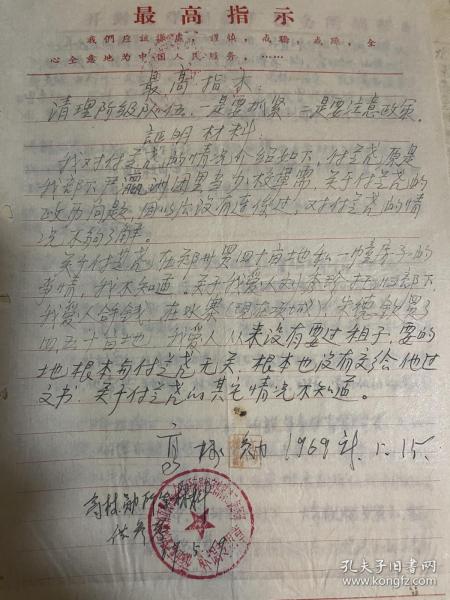 最高指示
我們应該謙虛,謹慎,戒驕,戒躁,全
心全意地为中国人民服务,……
最高指示:
清理阶级队伍,一是要抓紧,二是要注意政策。
証明材料:
我对付芝尧的情况介绍如下,付芝尧原是
我部下严瀛洲团里当少校軍需,关于付芝尧的
政历问题,因以后没有连係过,对付芝尧的情
况不夠了解。
关于付芝尧在郑州買四十亩地和一幢房子的
事情,我不知道。关于我爱人
我爱人 在 買了
四五十亩地,我爱人从来没有要过租子,要的
地根本与付芝尧无关,根本也没有交给他过
文书,关于付芝尧的其它情况不知道。
高 勛 1969年.1.15.
材料
供参考
孔夫子旧书网